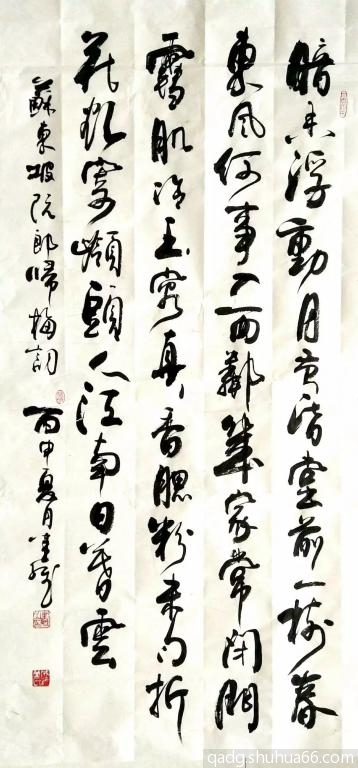 暗香浮動月黄昏堂前一樹春
東風何事入西鄰兒家常閉門
雪肌冷玉容真香腮粉未勻折
花欲寄嶺頭人江南日暮雲
蘇東坡阮郎歸梅詞 丙申夏月
qadg.shuhua66.com